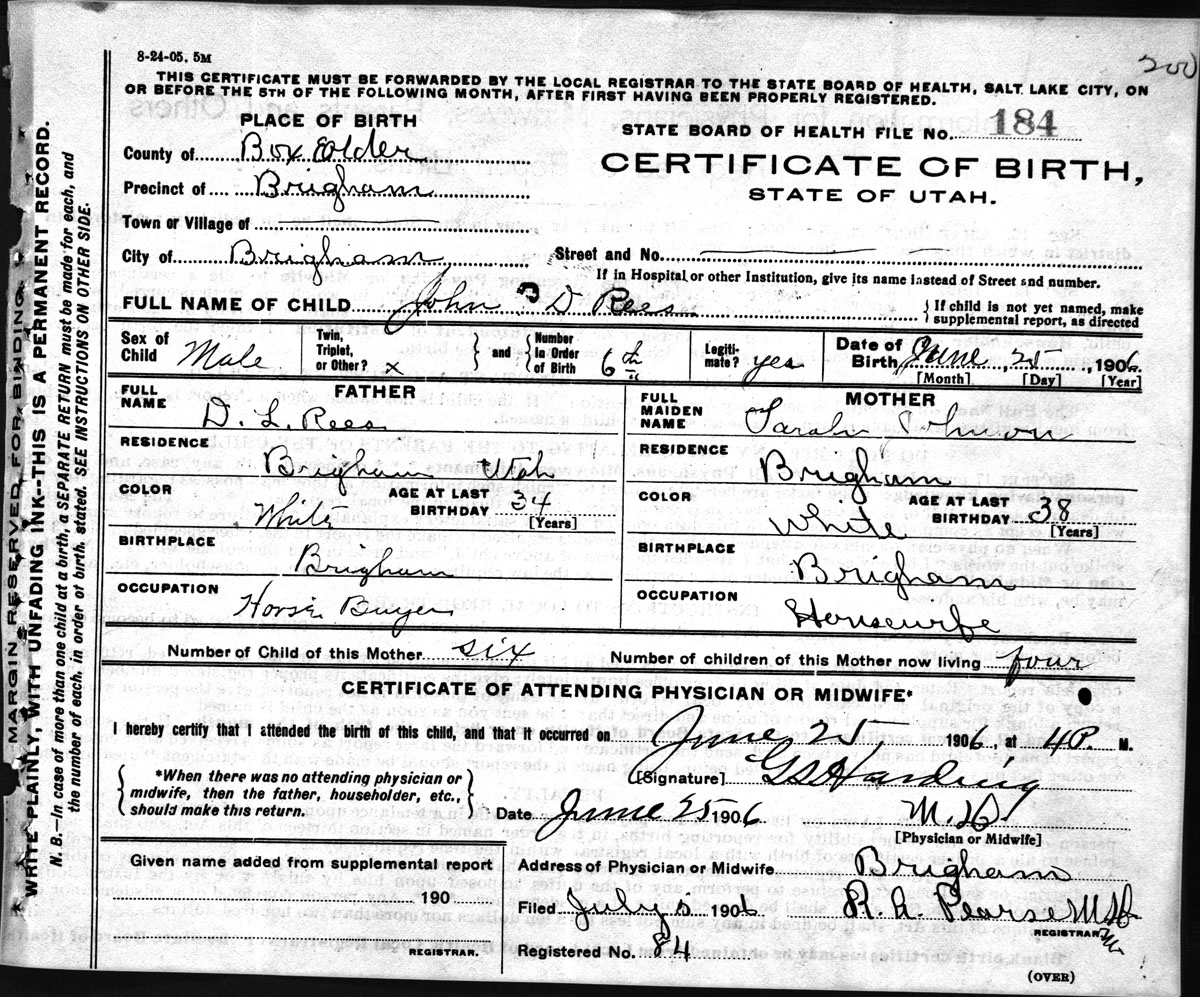 8-24-05. 5M
200
THIS CERTIFICATE MUST BE FORWARDED BY THE LOCAL REGISTRAR TO THE STATE BOARD OF HEALTH, SALT LAKE CITY, ON
OR BEFORE THE 5TH OF THE FOLLOWING MONTH, AFTER FIRST HAVING BEEN PROPERLY REGISTERED.
PLACE OF BIRTH
STATE BOARD OF HEALTH FILE No. 184
County of Box Elder
CERTIFICATE OF BIRTH,
Precinct of Brigham
STATE OF UTAH.
Town or Village of
City of Brigham Street and No.
If in Hospital or other Institution, give its name instead of Street and number.
FULL NAME OF CHILD John D Rees { If child is not yet named, make
supplemental report, as directed
Sex of Child Male
Twin, Triplet, or Other? x } and { Number in Order of Birth 6th
Legitimate? yes
Date of Birth June, 25, 1906
[Month] [Day] [Year]
FATHER
FULL NAME D. L. Rees
RESIDENCE
Brigham Utah
COLOR White AGE AT LAST BIRTHDAY 34
[Years]
BIRTHPLACE
Brigham
OCCUPATION
Horse Buyer
MOTHER
FULL MAIDEN NAME Sarah Johnson
RESIDENCE
Brigham
COLOR White AGE AT LAST BIRTHDAY 38
[Years]
BIRTHPLACE
Brigham
OCCUPATION
Housewife
Number of Child of this Mother six Number of children of this Mother now living four
CERTIFICATE OF ATTENDING PHYSICIAN OR MIDWIFE*
I hereby certify that I attended the birth of this child, and that it occurred on June 25, 1906, at 4 P. M.
{ *When there was no attending physician or
midwife, then the father, householder, etc.,
should make this return. }
[Signature] Harding
Date June 25 1906 M.D.
[Physician or Midwife]
Given name added from supplemental report
190
REGISTRAR.
Address of Physician or Midwife Brigham
Filed July 5 1906 R. A. Pearse M.D.
REGISTRAR
Registered No. 84
(OVER)
MARGIN RESERVED FOR BINDING
WRITE PLAINLY, WITH UNFADING INK--THIS IS A PERMANENT RECORD.
N. B.--In case of more than one child at a birth, a SEPARATE RETURN must be made for each, and
the number of each, in order of birth, stated. SEE INSTRUCTIONS ON OTHER SIDE.